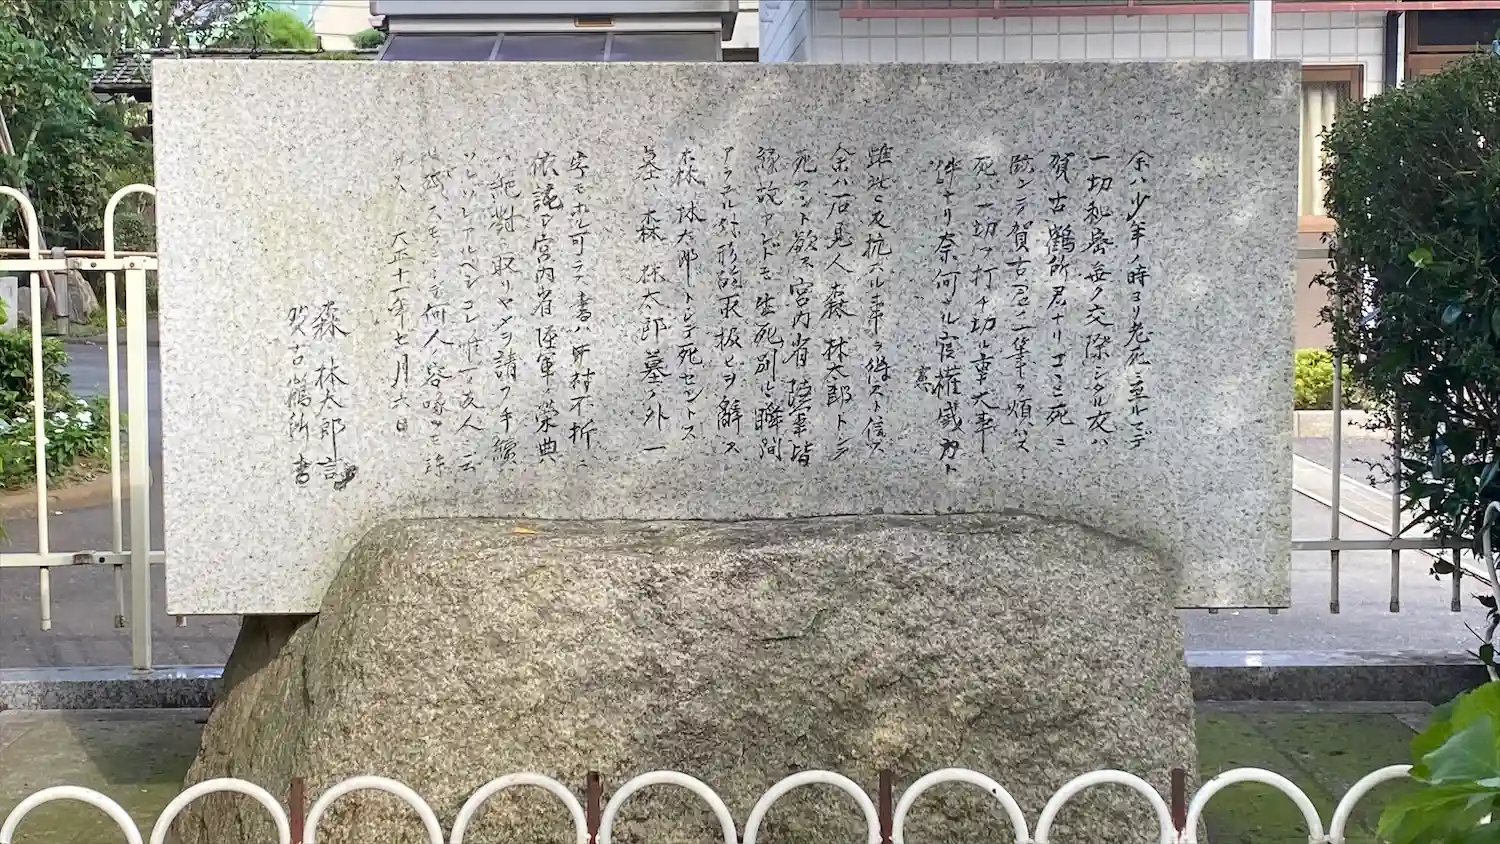 余ハ少年ノ時ヨリ老死ニ至ルマデ
一切秘密無ク交際シタル友ハ
賀古鶴所君ナリコヽニ死ニ
臨ンテ賀古君ノ一筆ヲ煩ハス
死ハ一切ヲ打チ切ル重大事
件ナリ奈何ナル官憲威力ト
雖此ニ反抗スル事ヲ得スト信ス
余ハ石見人森林太郎トシテ
死セント欲ス宮内省陸軍皆
縁故アレドモ生死別ルヽ瞬間
アラユル外形的取扱ヒヲ辞ス
森林太郎トシテ死セントス
墓ハ森林太郎墓ノ外一
字モホル可ラス書ハ中村不折ニ
依託シ宮内省陸軍ノ榮典
ハ絶對ニ取リヤメヲ請フ手續
ハソレゾレアルベシコレ唯一ノ友人ニ云
ヒ残スモノニシテ何人ノ容喙ヲモ許
サス
大正十一年七月六日
森林太郎言
賀古鶴所書